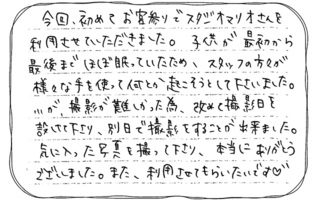 今回、初めてお宮参りでスタジオマリオさんを
利用させていただきました。子供が最初から
最後までほぼ眠っていたため、スタッフの方々が
様々な手を使って何とか起こそうとして下さいました。
が、撮影が難しかった為、改めて撮影日を
設けて下さり、別日で撮影をすることが出来ました。
気に入った写真を撮って下さり、本当にありがとう
ございました。また、利用させてもらいたいです♡